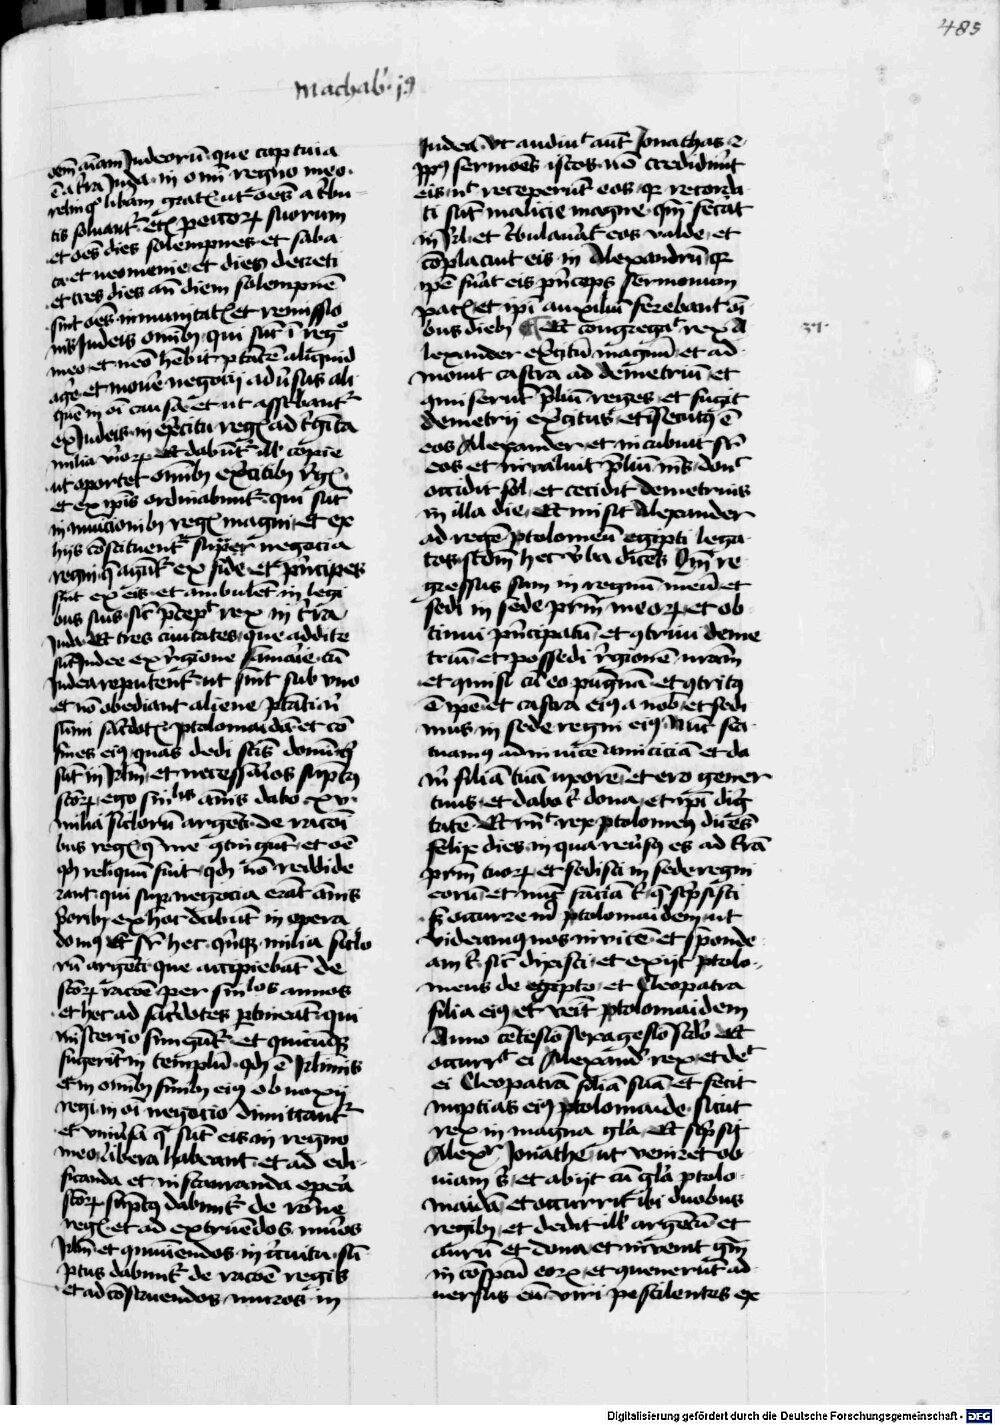 485
Machab' j9
oem aiam Judeoru que captiva
e a tra Juda in omi regno meo
relinqo libam gratis ut oes a tbu
tis solvant etia pecorum suorum
et oes dies solempnes et saba
ta et neomenie et dies decreti
et tres dies an diem solempne
sint oes inmunitatis et remissio
nis Judeis omib qui sut i regno
meo et nemo hebit ptatem aliquid
agere et movere negocii adversus ali
quem in oi causa et ut asscribantur
ex Judeis in exercitu regis ad triginta
milia viroru et dabuntur illis copie
ut oportet omib exercitib regis
et ex ipis ordinabuntur qui sint
in municionib regis magni et ex
hijs constituentur super negocia
regni que aguntur ex fide et principes
sint ex eis et ambulent in legi
bus suis sicut precepit rex in terra
Juda Et tres civitates que addite
sut Judee ex regione samarie cum
Judea reputentur ut sint sub uno
et no obediant aliene ptati nisi
sumi sacerdotis ptolomaida et con
fines eius quas dedi sctis domib q
sut in Jrlm et necessarios sumptus
sctoru ego singulis annis dabo xv
milia siclorum argeti de racoi
bus regis que me contingunt et oe
qd reliquum fuit qd no reddide
rant qui super negocia erant annis
priorib ex hoc dabunt in opera
domus Et super hec quinque milia siclo
ru argeti que accipiebant de
sctoru racoe per singulos annos
et hec ad sacerdotes pertineant qui
ministerio funguntur et quicumque
fugerit in templum qd e Jrlimis
et in omib finib eius obnoxij
regi in oi negocio dimittantur
et universa que sunt eis in regno
meo libera habeant et ad edi
ficanda et instauranda opera
sctoru sumptus dabuntur de racone
regis et ad extruendos muros
Jrlm et comuniendos in circuitu sum
ptus dabuntur de racoe regis
et ad construendos muros in
Judea ut audivit aut Jonathas et
pplus sermoes istos no crediderunt
eis nec receperunt eos qr recorda
ti sut malicie magne qm fecerat
in Jrl et tribulaverat eos valde et
coplacuit eis in Alexandru qr
ipe fuerat eis princeps sermonum
pacis et ipi auxilium ferebant oi
bus dieb Et congregavit rex A
lexander exercitum magnum et ad
movit castra ad demetrium et
comiserunt prelium reges et fugit
demetrij exercitus et insecutus e
eos Alexander et incubuit super
eos et invaluit prelium nimis donec
occidit sol et cecidit demetrius
in illa die Et misit Alexander
ad regem ptolomeum egipti lega
tos scdm hec verba dicens Qm re
gressus sum in regnum meum et
sedi in sede patrum meorum et ob
tinui principatum et contrivi deme
trium et possedi regionem nostram
et comisi cum eo pugnam et contritus
e ipe et castra eius a nobis et sedi
mus in sede regni eius Nunc sta
tuamus adinvicem amiciciam et da
michi filiam tuam uxorem et ero gener
tuus et dabo tibi dona et ipi dig
tate Et respondit rex ptolomeus dicens
felix dies in qua reversus es ad terram
patrum tuorum et sedisti in sede regni
eorum et nunc faciam tibi que scripsisti
Sed occurre michi ptolomaidem ut
videamus nos invicem et sponde
am tibi sicut dixisti et exijt ptolo
meus de egipto et Cleopatra
filia eius et venit ptolomaidem
Anno centesimo sexagesimo secundo Et
occurrit ei Alexander rex et dedit
ei Cleopatram filiam suam et fecit
nuptias eius ptolomaide sicut
rex in magna gloria Et scripsit
Alexander Jonathe ut veniret ob
viam sibi et abijt cum gloria ptolo
maidam et occurrit ibi duobus
regib et dedit illis argentum et
aurum et dona et invenit gratiam
in conspectu eorum et convenerunt ad
versus eum viri pestilentes ex
Digitalisierung gefördert durch die Deutsche Forschungsgemeinschaft - DFG